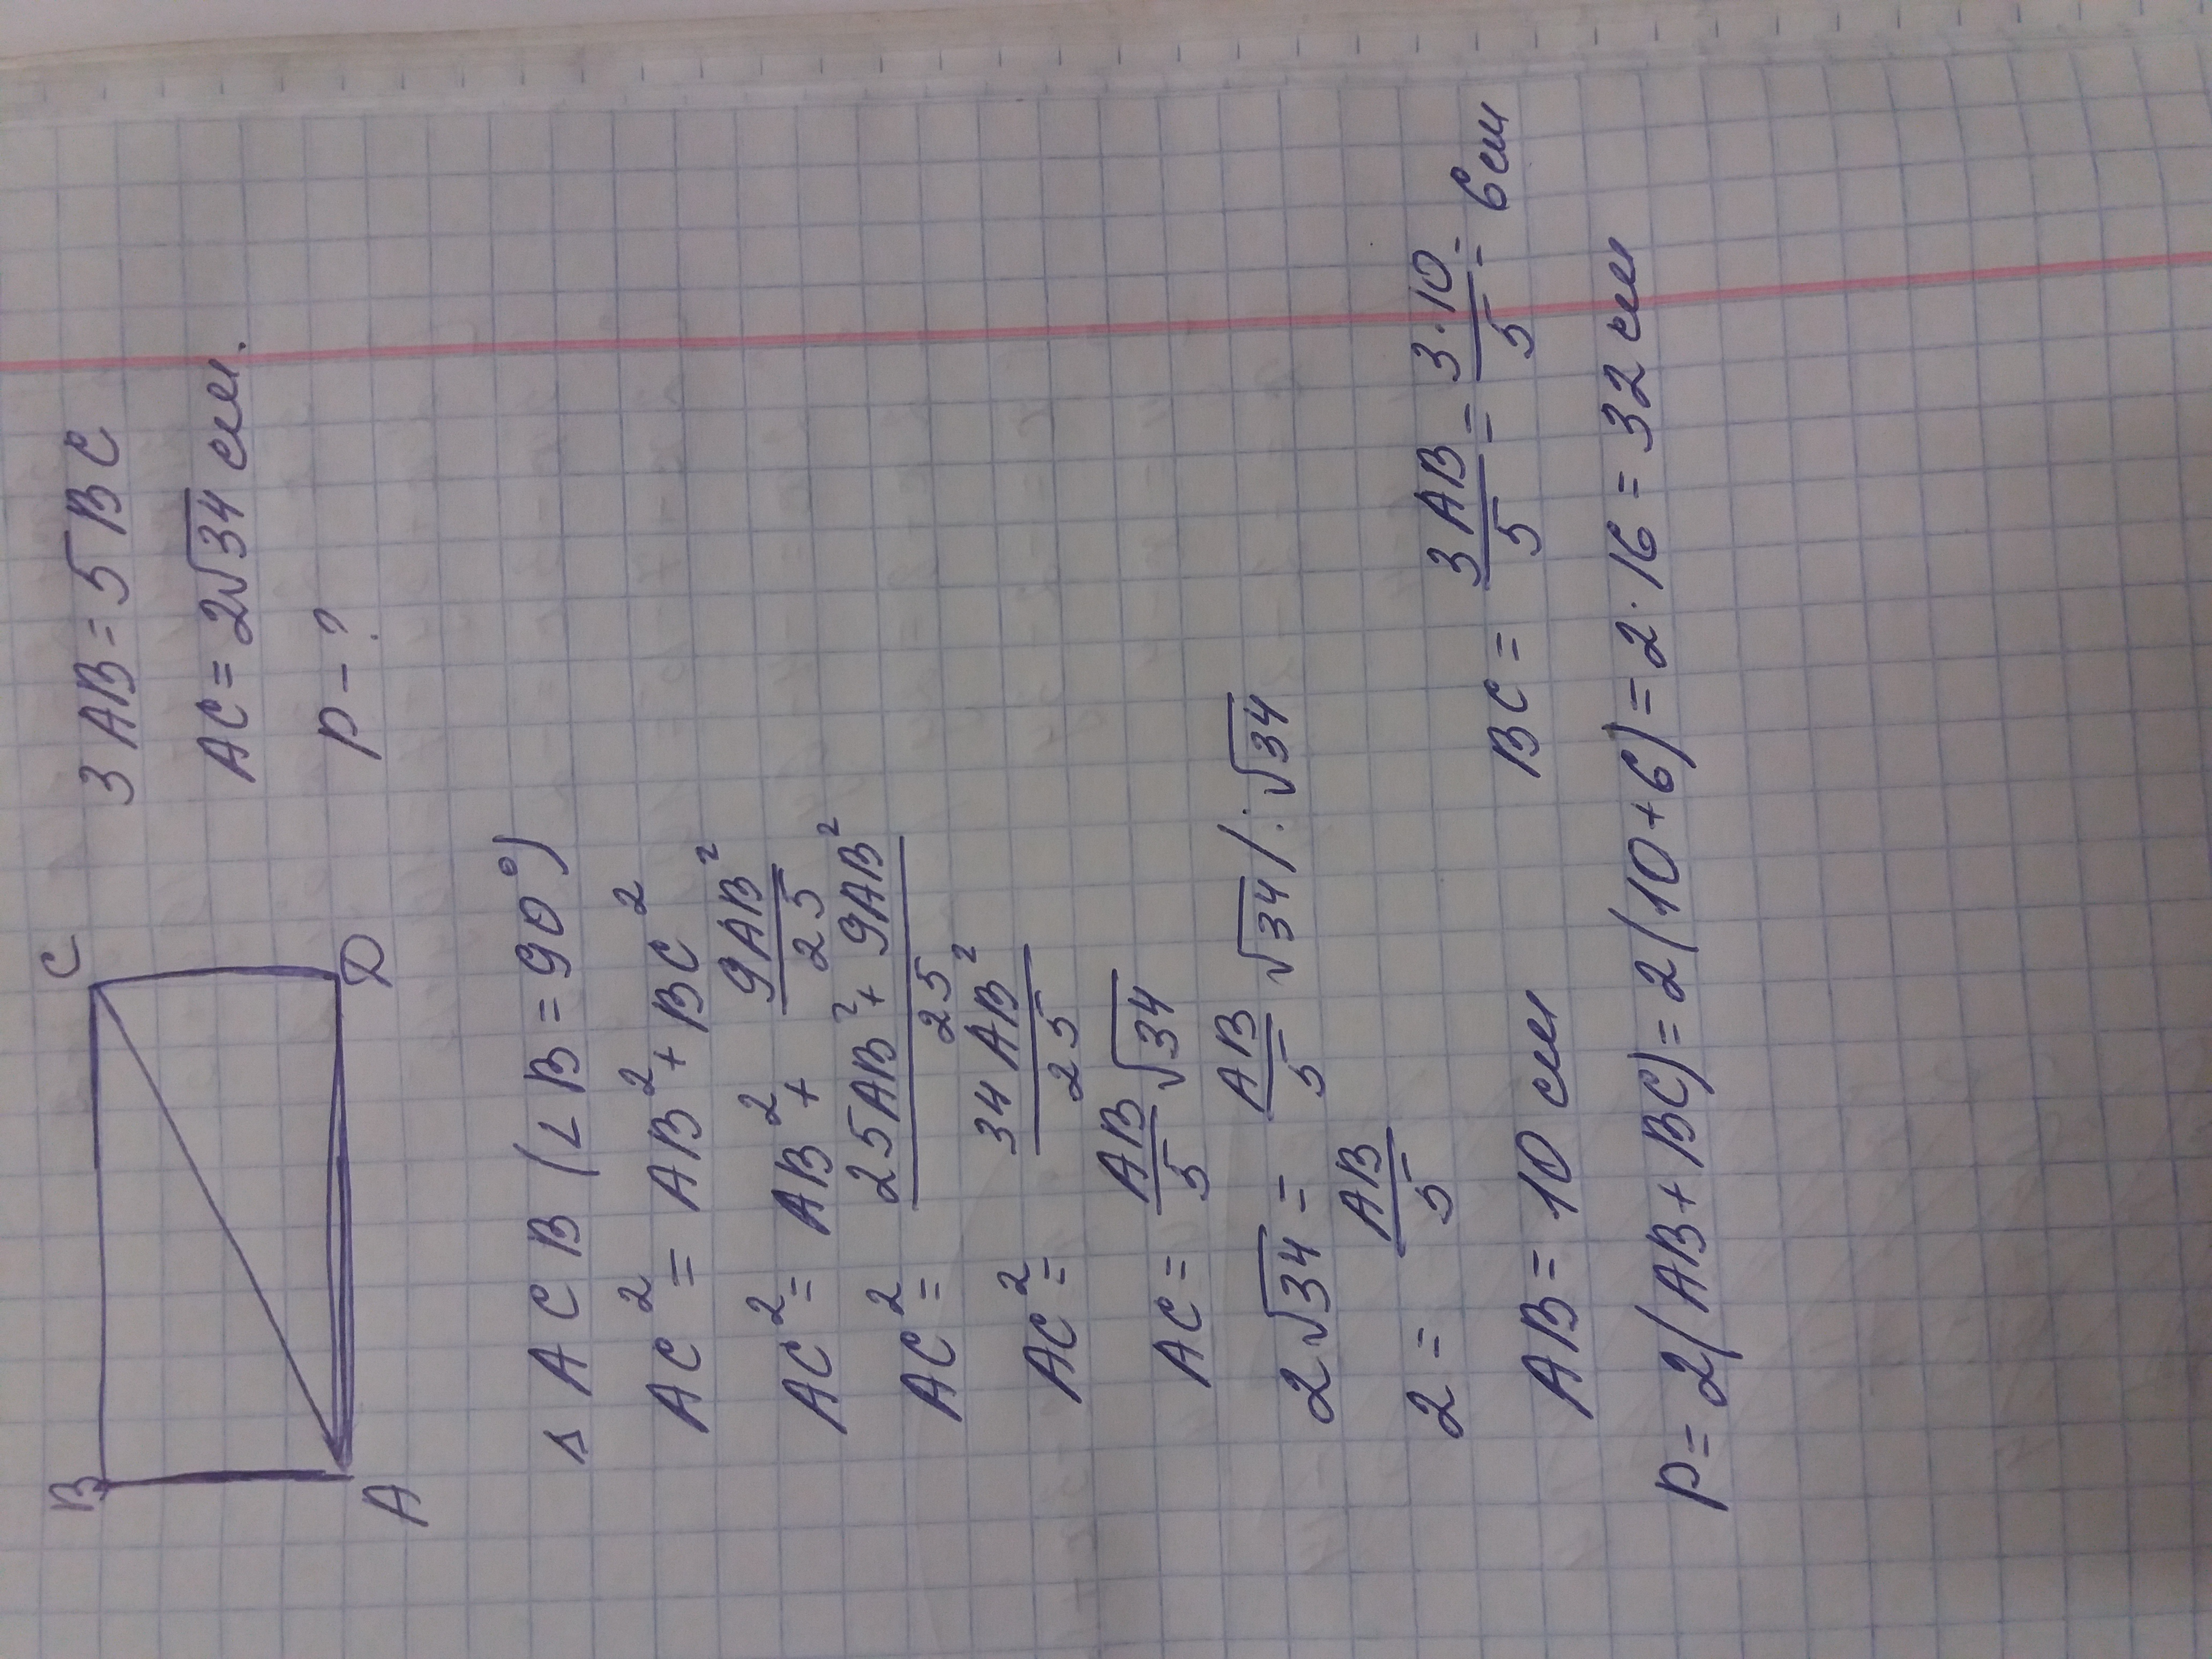 B C
A D
3 AB = 5 BC
AC = 2√34 см.
P - ?
△ ACB (∠B = 90°)
AC² = AB² + BC²
AC² = AB² + 9AB²/25
AC² = (25AB² + 9AB²)/25
AC² = 34AB²/25
AC = AB/5 √34
2√34 = AB/5 √34 / : √34
2 = AB/5
AB = 10 см BC = 3AB/5 = 3·10/5 = 6 см
P = 2(AB + BC) = 2(10+6) = 2·16 = 32 см